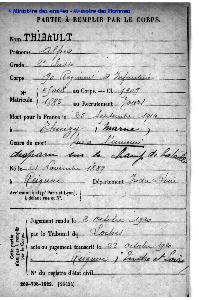 © Ministère des armées - Mémoire des Hommes
PARTIE À REMPLIR PAR LE CORPS.
Nom THIBAULT
Prénoms Alfred
Grade 2e Classe
Corps 90 Régiment d'Infanterie
N° Matricule au Corps. — Cl. 1907
1083 au Recrutement Tours
Mort pour la France le 25 Septembre 1914
à (Marne)
Genre de mort
disparu sur le champ de bataille
Né le 21 Novembre 1887
à Département Indre-Loire
Arr municipal (pr Paris et Lyon),
à défaut rue et N°.
Cette partie n'est pas à remplir par le Corps.
Jugement rendu le octobre 1920
par le Tribunal de Loches
acte ou jugement transcrit le 22 octobre 1920
à (Indre et Loire)
N° du registre d'état civil